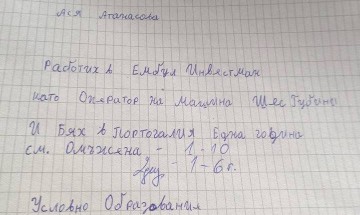 Ася Атанасова
Работих в Ембул Инвестман
като Оператор на машина Шес Губини
И Бях в Португалия Една година
см. Омъжена - 1-10
1-6 г.
Условно Образования